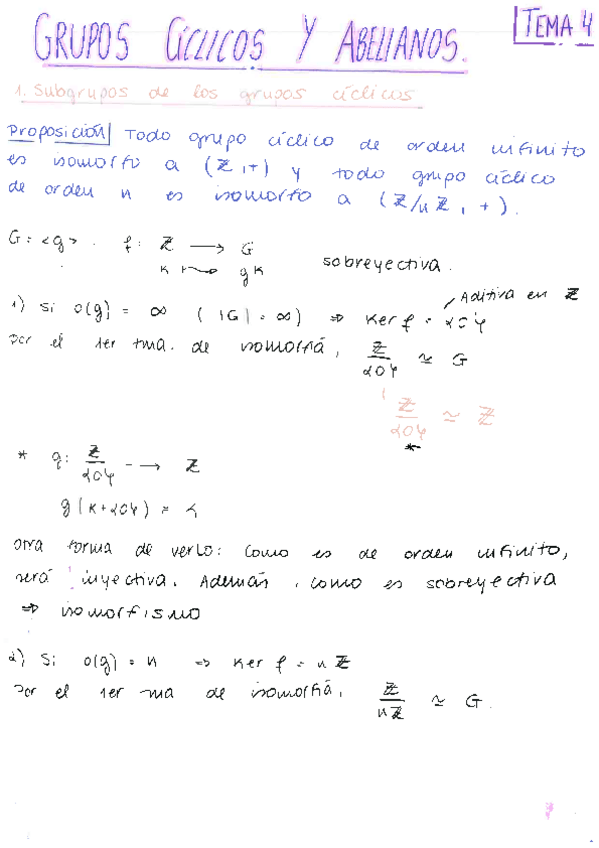 GRUPOS CÍCLICOS Y ABELIANOS.
TEMA 4
1. Subgrupos de los grupos cíclicos
Proposición Todo grupo cíclico de orden infinito
es isomorfo a (ℤ, +) y todo grupo cíclico
de orden n es isomorfo a (ℤ/nℤ, +).
G = <g>. f: ℤ → G
k ↦ gk sobreyectiva.
Aditiva en ℤ
1) Si o(g) = ∞ (|G| = ∞) ⇒ Ker f = {0}
Por el 1er tma. de isomorfía, ℤ/{0} ≃ G
ℤ/{0} ≃ ℤ
*
* g: ℤ/{0} → ℤ
g(k+{0}) = k
otra forma de verlo: como es de orden infinito,
será inyectiva. Además, como es sobreyectiva
⇒ isomorfismo
2) Si o(g) = n ⇒ Ker f = nℤ
Por el 1er tma de isomorfía, ℤ/nℤ ≃ G.